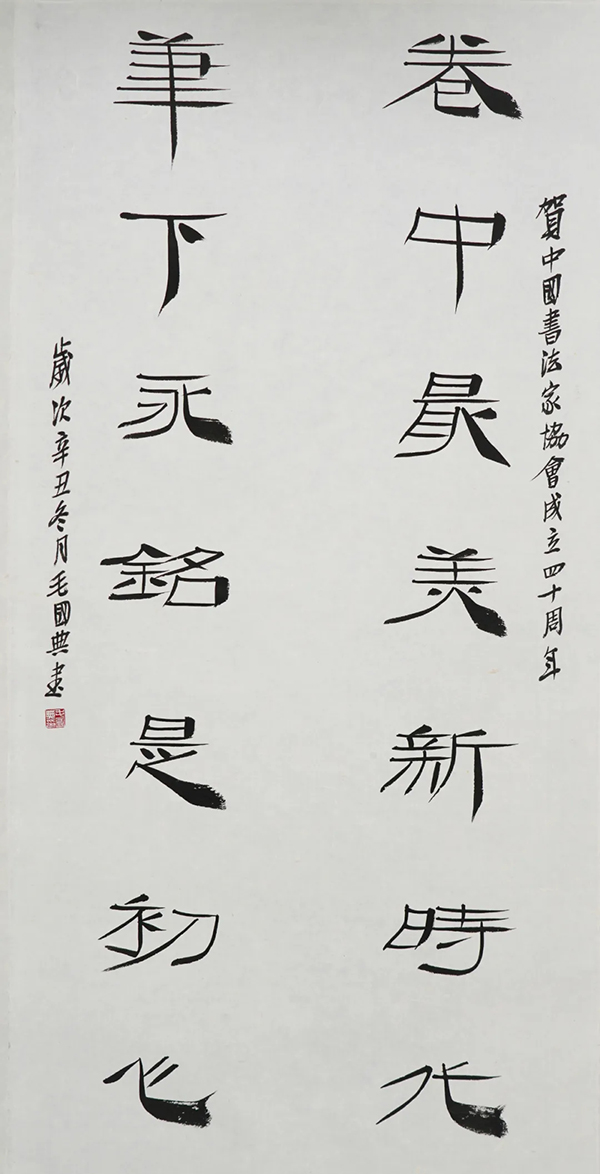 賀中國書法家協會成立四十周年
卷中最美新時代
筆下永銘是初心
歲次辛丑冬月毛國典書